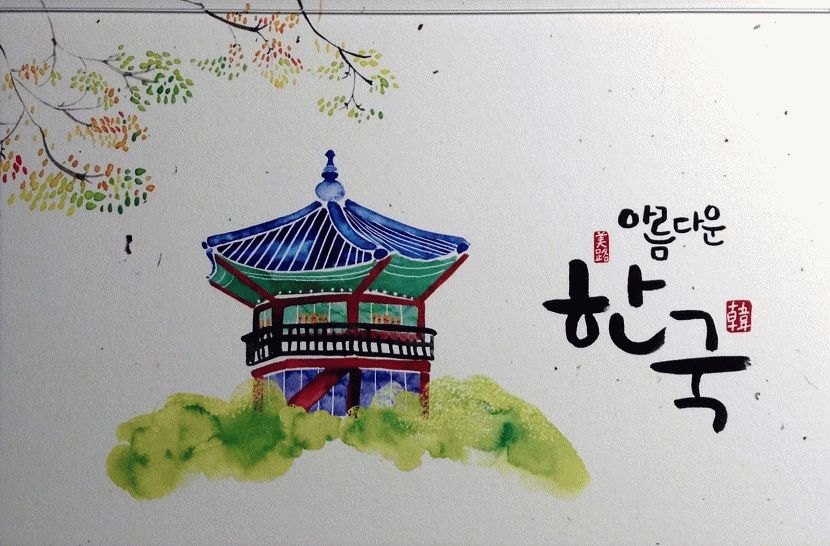 아름다운
美路
한국
韓